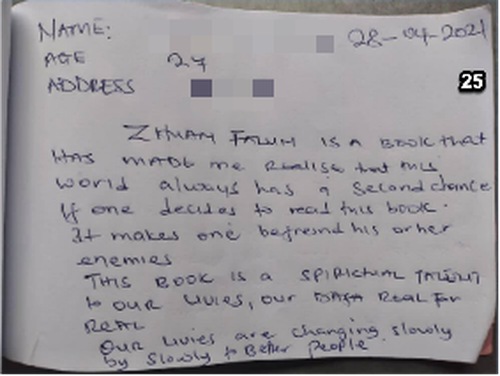 NAME: 28-04-2021
AGE 27
ADDRESS
25
ZHUAN FALUN IS A BOOK that
HAS MADE me Realise that this
world always has a second chance
If one decides to read this book.
It makes one befriend his or her
enemies
THIS BOOK IS A SPIRICTUAL TALENT
to OUR LIVIES, OUR Real For
REAL
OUR LIVIES are changing slowly
by slowly to Better People.